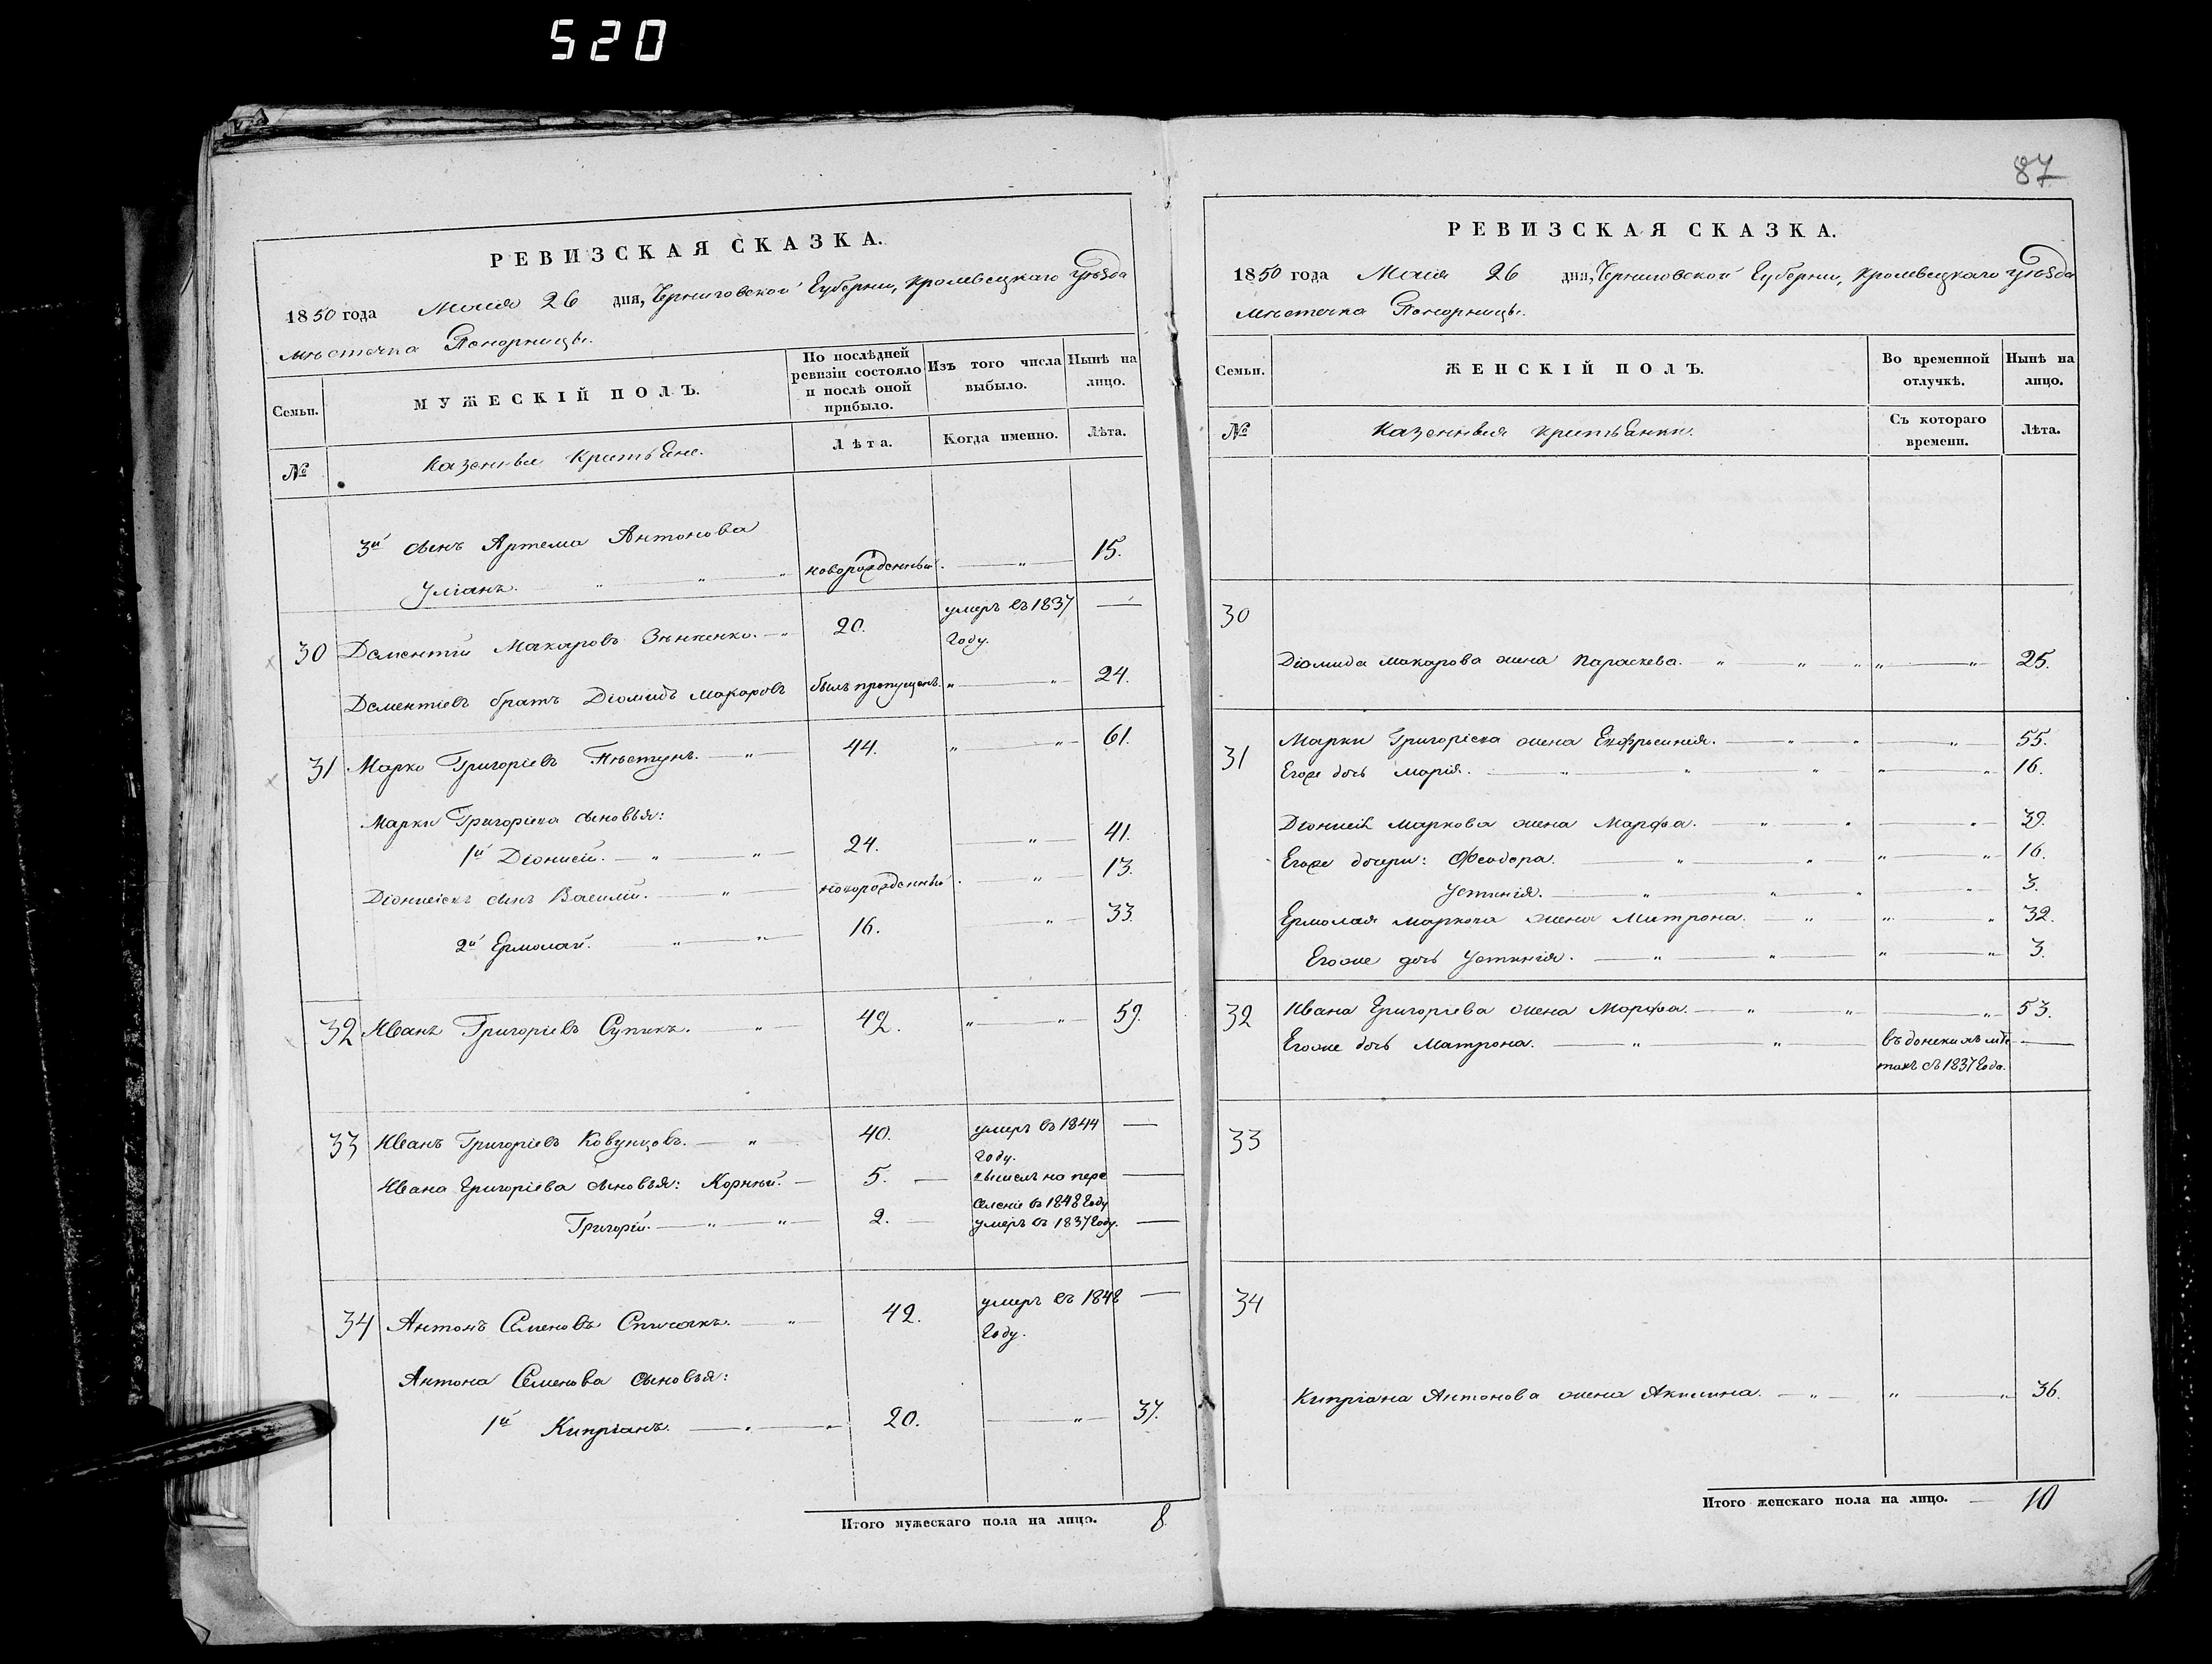 520
87
РЕВИЗСКАЯ СКАЗКА.
1850 года Маія 26 дня, Черниговской Губерніи, Кролевецкаго Уѣзда
мѣстечка Понорницы.
Семьи. МУЖЕСКІЙ ПОЛЪ. По послѣдней ревизіи состояло и послѣ оной прибыло. Изъ того числа выбыло. Нынѣ на лицо.
№ Казенные крестьяне. Лѣта. Когда именно. Лѣта.
3й сынъ Артема Антонова
Уліанъ. новорожденный. 15.
30 Дементій Макаровъ 20. умеръ въ 1837 году. —
Дементіевъ братъ Діомидъ Макаровъ былъ пропущенъ. 24.
31 Марко Григоріевъ Пѣстунъ. 44. 61.
Марки Григоріева сыновья:
1й Діонисій. 24. 41.
Діонисіевъ сынъ Василій. новорожденный. 13.
2й Ермолай. 16. 33.
32 Иванъ Григоріевъ Супикъ. 42. 59.
33 Иванъ Григоріевъ Ковунцовъ. 40. умеръ въ 1844 году. —
Ивана Григоріева сыновья: Корнѣй. 5. вышелъ на пере
селеніе въ 1848 году —
Григорій. 2. умеръ въ 1837 году. —
34 Антонъ Семеновъ 42. умеръ въ 1848 году. —
Антона Семенова сыновья:
1й Кипріанъ. 20. 37.
Итого мужескаго пола на лицо. 8
РЕВИЗСКАЯ СКАЗКА.
1850 года Маія 26 дня, Черниговской Губерніи, Кролевецкаго Уѣзда
мѣстечка Понорницы.
Семьи. ЖЕНСКІЙ ПОЛЪ. Во временной отлучкѣ. Нынѣ на лицо.
№ Казенныя крестьянки. Съ котораго времени. Лѣта.
30
Діомида Макарова жена Параскева. 25.
31 Марки Григоріева жена Ефросинія. 55.
Егоже дочь Марія. 16.
Діонисія Маркова жена Марфа. 39.
Егоже дочери: Феодора. 16.
Устинія. 3.
Ермолая Маркова жена Матрона. 32.
Егоже дочь Устинія. 3.
32 Ивана Григоріева жена Марфа. 53.
Егоже дочь Матрона. —
съ 1837 года.
33
34
Кипріана Антонова жена Акилина. 36.
Итого женскаго пола на лицо. 10